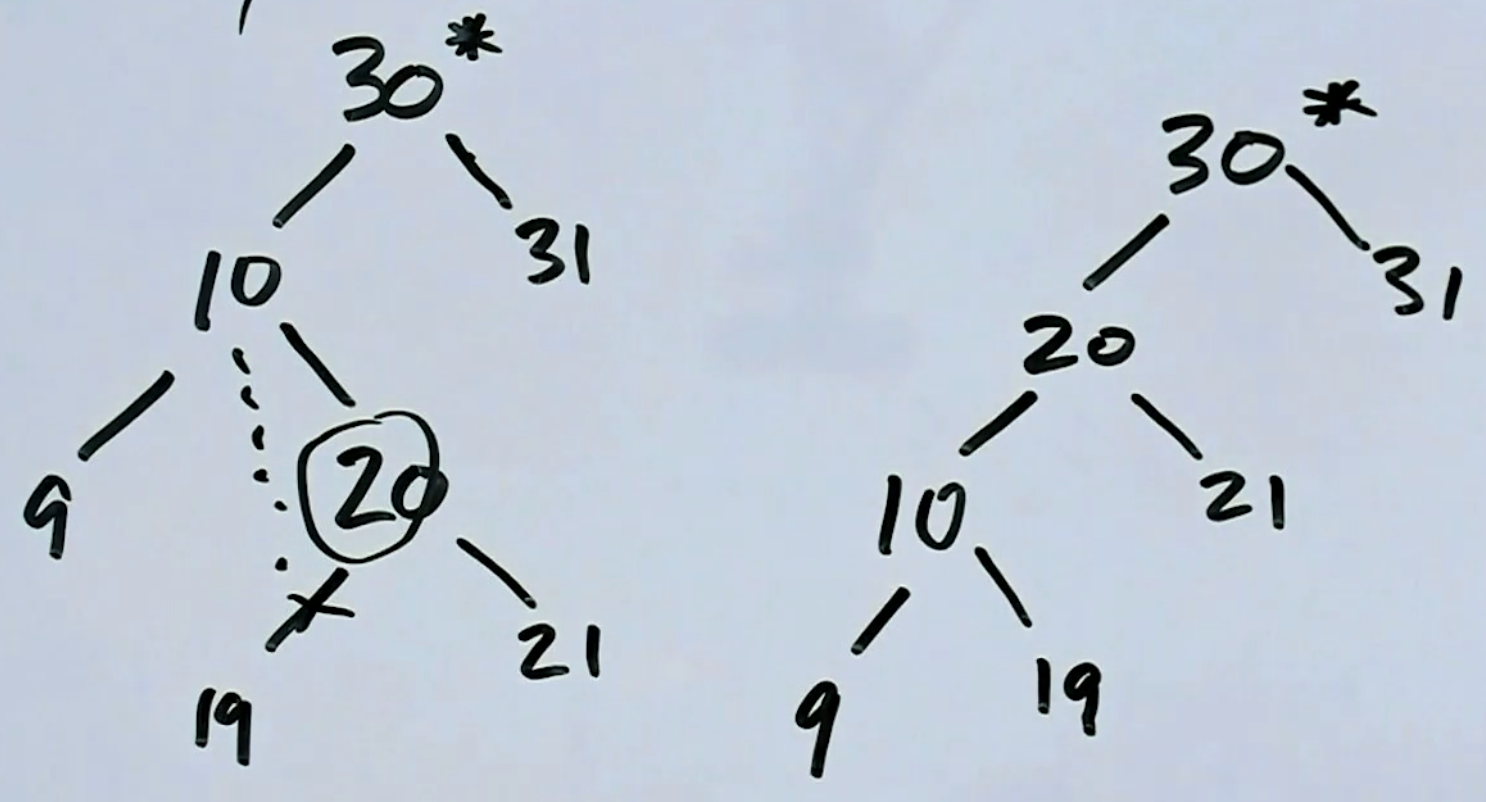 30*
10 31
9 20
19 21
30*
31
20
10 21
9 19